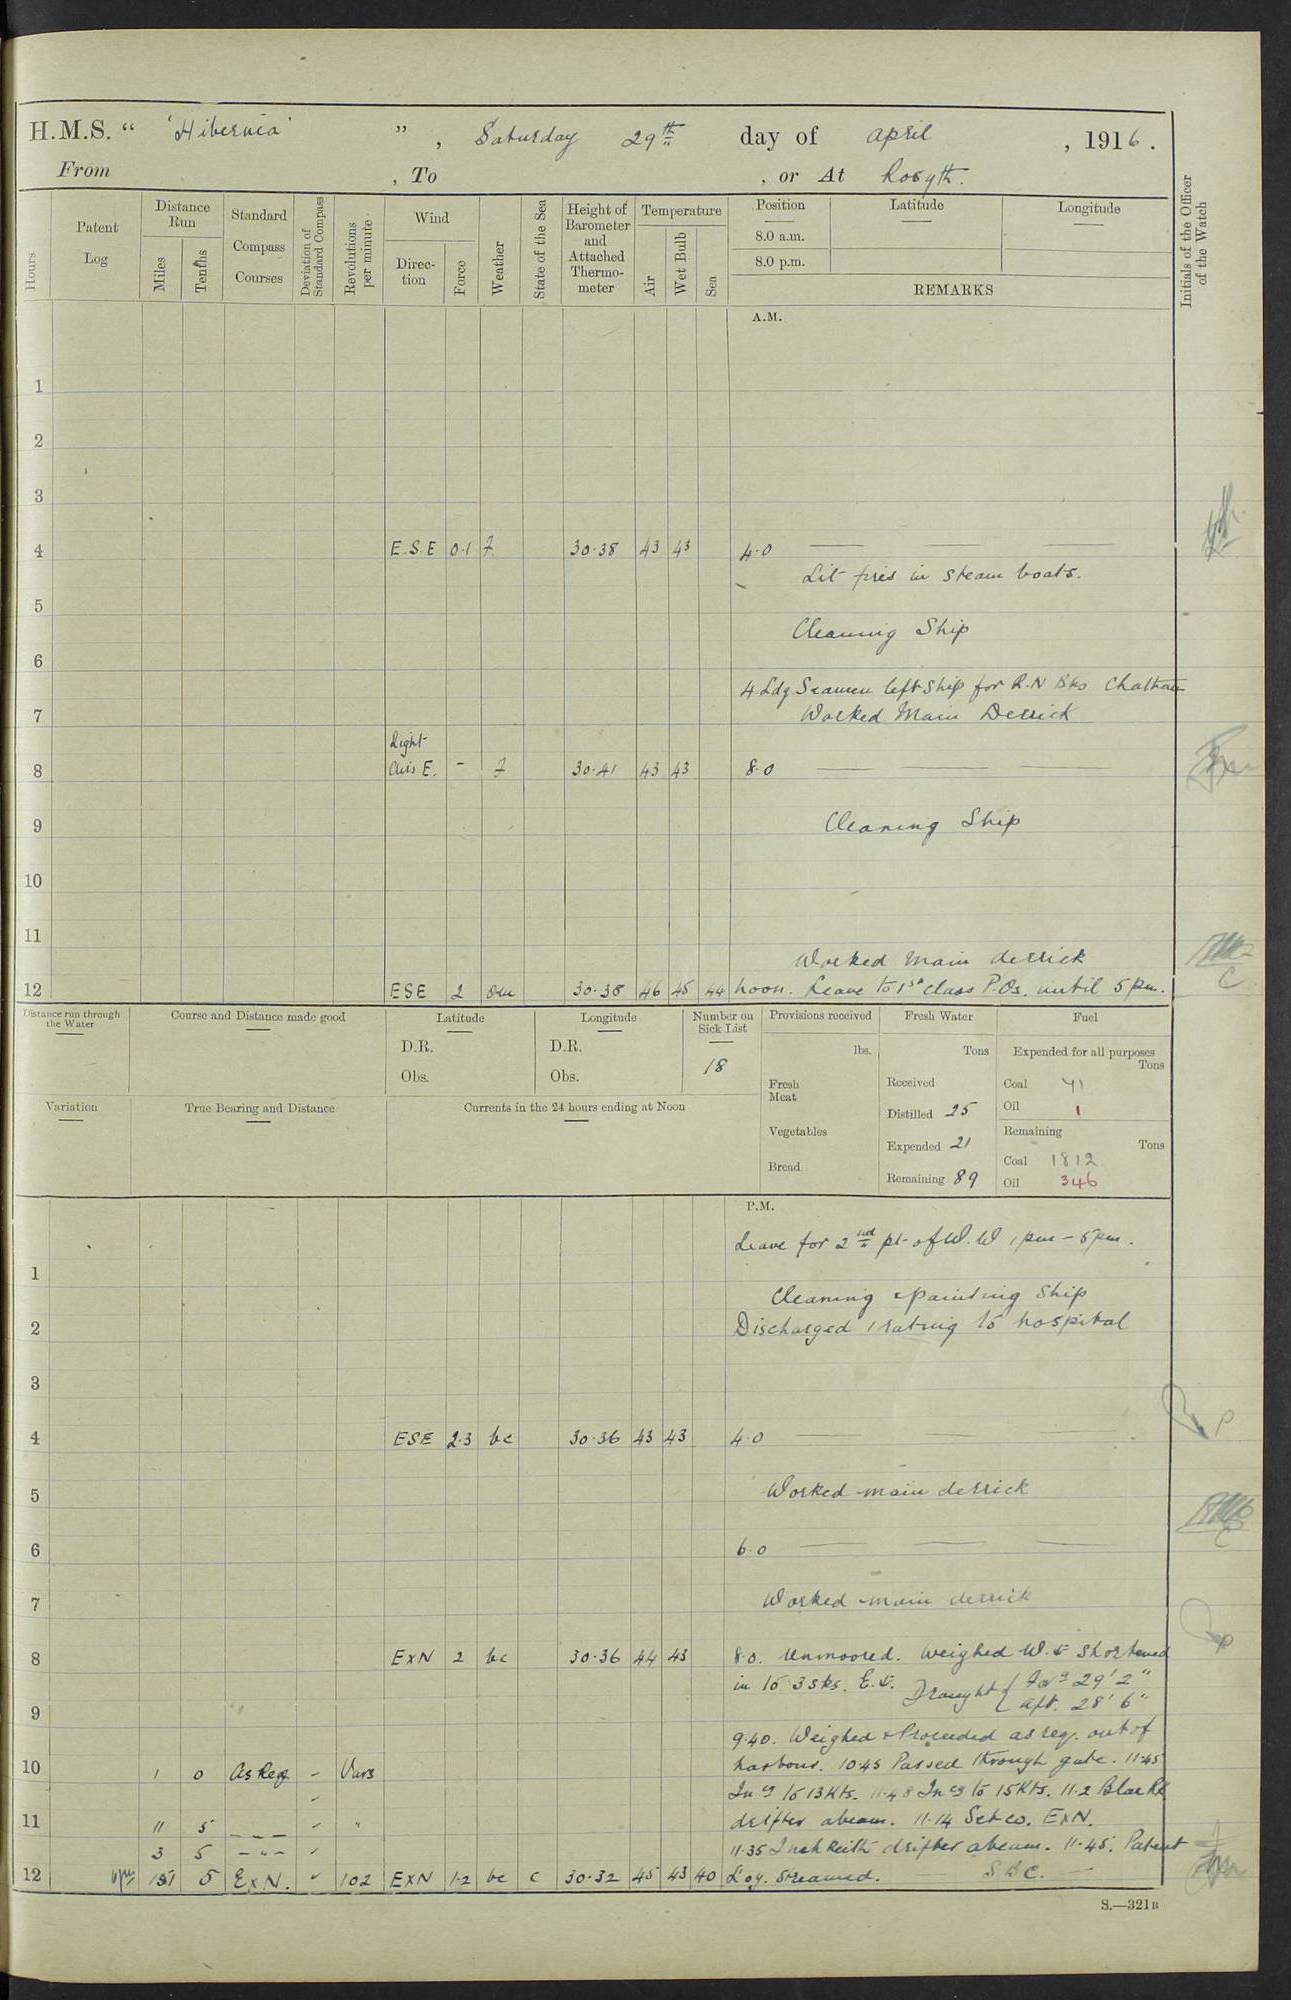 H.M.S. “ 'Hibernia' ” , Saturday 29th day of April , 1916 .
From , To , or At Rosyth.
Hours
Patent Log
Distance Run
Miles
Tenths
Standard Compass Courses
Deviation of Standard Compass
Revolutions per minute
Wind
Direc-tion
Force
Weather
State of the Sea
Height of Barometer and Attached Thermo-meter
Temperature
Air
Wet Bulb
Sea
Position
8.0 a.m.
8.0 p.m.
Latitude
Longitude
REMARKS
Initials of the Officer of the Watch
A.M.
1
2
3
4 E.S.E 0.1 f 30.38 43 43 4.0
Lit fires in steam boats.
5
Cleaning Ship
6
4 Ldg Seamen left ship for R.N Bks Chatham
7 Worked Main Derrick
Light
8 Airs E. - f 30.41 43 43 8.0
9 Cleaning Ship
10
11
Worked main derrick
12 ESE 2 om 30.38 46 45 44 Noon. Leave to 1st class P.Os. until 5 pm.
Distance run through the Water
Course and Distance made good
Latitude
D.R.
Obs.
Longitude
D.R.
Obs.
Number on Sick List
18
Provisions received
lbs.
Fresh Meat
Vegetables
Bread
Fresh Water
Tons
Received
Distilled 25
Expended 21
Remaining 89
Fuel
Expended for all purposes
Tons
Coal 41
Oil 1
Remaining
Tons
Coal 1812
Oil 346
Variation
True Bearing and Distance
Currents in the 24 hours ending at Noon
P.M.
Leave for 2nd pt of W.W 1 pm - 5 pm.
1
Cleaning & painting ship
2 Discharged 1 rating to hospital
3
4 ESE 2.3 bc 30.36 43 43 4.0
5 Worked main derrick
6 6.0
7 Worked main derrick
8 ExN 2 bc 30.36 44 43 8.0. Unmoored. Weighed W. & shortened
in to 3 sks. E. Draught { Ford 29' 2"
9 Aft. 28' 6"
9.40. Weighed & Proceeded as req. out of
10 1 0 As Req - Vars harbour. 10.45 Passed through gate. 11.45
Incg to 13 Kts. 11.48 Incg to 15 Kts. 11.2 Black Rk
11 11 5 - - - " drifter abeam. 11.14 Set co. ExN.
3 5 - " - 11.35 Inch Keith drifter abeam. 11.45. Patent
12 5 ExN. 102 ExN 1.2 bc c 30.32 45 43 40 Log. Streamed. SBC.
S.—321B